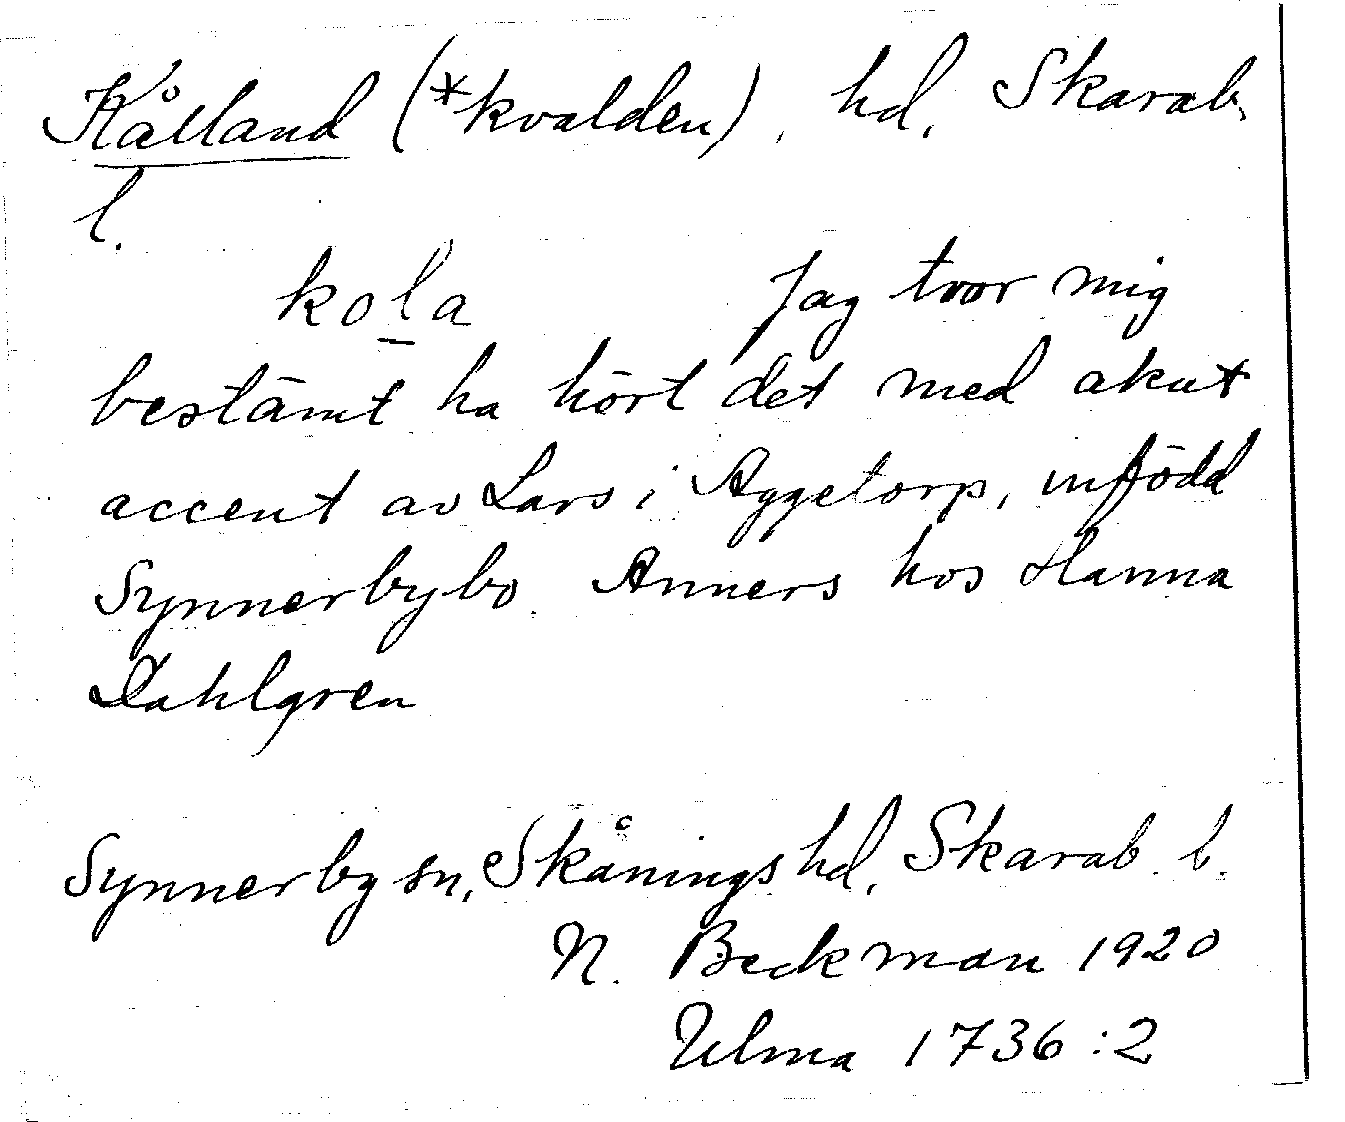 Kålland (*kvalden), hd, Skarab.
l.
kola Jag tror mig
bestämt ha hört det med akut
accent av Lars i Aggetorp, infödd
Synnerbybo. Anners hos Hanna
Dahlgren
Synnerby sn, Skånings hd, Skarab. l.
N. Beckman 1920
Ulma 1736:2